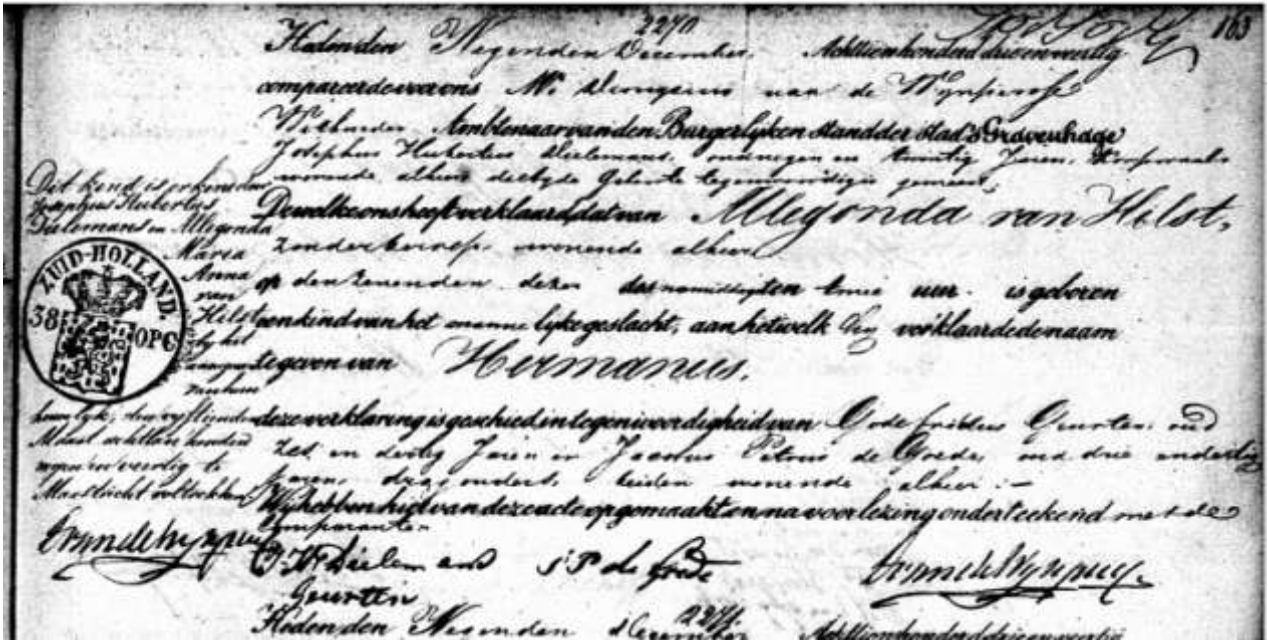 2270
163
Heden den Negenden December Achttienhonderd drie en veertig
compareerde voor ons Mr van de Wynpersse
Wethouder Ambtenaar van den Burgerlyken stand der stad 's Gravenhage
Josephus Hubertus Dielemans, oud negen en twintig Jaren, Korporaal
wonende alhier
Dewelke ons heeft verklaard, dat van Allegonda van Hilst,
zonder beroep, wonende alhier
op den zevenden dezer des namiddags ten twee uur is geboren
een kind van het mannelyke geslacht, aan hetwelk hy verklaarde de naam
te geven van Hermanus.
deze verklaring is geschied in tegenwoordigheid van Godefridus Geurten oud
zes en dertig Jaren en Jacobus Petrus de Goede, oud drie en dertig
Jaren, beiden wonende alhier
Wy hebben hiervan deze acte opgemaakt en na voorlezing onderteekend met de
Comparanten
Dit kind is erkend door
Josephus Hubertus
Dielemans en Allegonda
Maria
Anna
van
Hilst
by het
huwelyk, den vyftienden
Maart achttien honderd
negen en veertig te
Maastricht voltrokken
ZUID-HOLLAND
38 OPC
J H Dielemans
J P de Goede
Geurten
2271
Heden den Negenden December Achttienhonderd drie en veertig